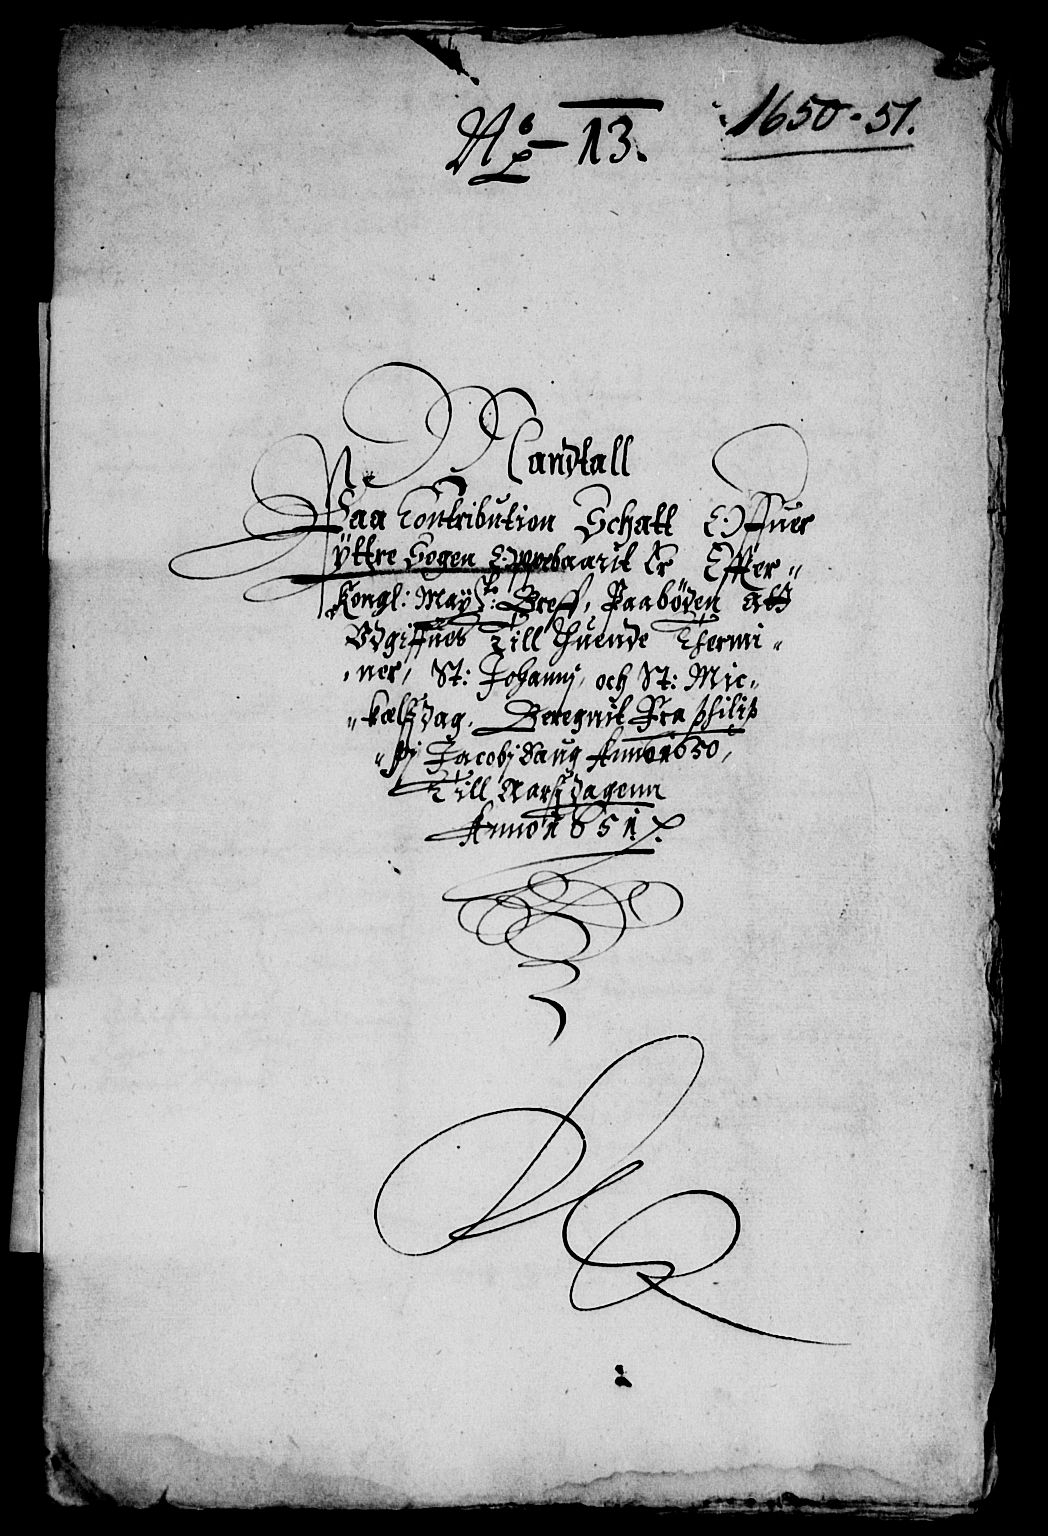 1650-51.
No 13.
Mandtall
Paa Contribution Schatt Offuer
Yttre Sogen Oppebaarit Er Effter
Kongl: Maÿtz: Breff, Paabøden att
Vdgiffues Till Thuende Thermi-
ner, St: Johannj, och St: Mic-
kelssdag, Beregnit Fra Philip-
pj Jacobj Daug Anno 1650,
Till Aarssdagenn
Anno 1651